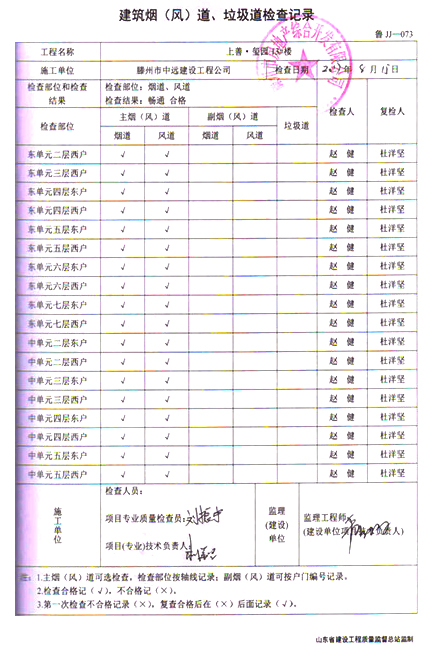 建筑烟（风）道、垃圾道检查记录
鲁 JJ—073
工程名称 上善·玺园 13#楼
施工单位 滕州市中远建设工程公司 检查日期 年 9 月 日
检查部位和检查结果 检查部位：烟道、风道
检查结果：畅通 合格
检查部位 主烟（风）道 副烟（风）道 垃圾道 检查人 复检人
烟道 风道 烟道 风道
东单元二层西户 √ √ 赵 健 杜洋坚
东单元三层西户 √ √ 赵 健 杜洋坚
东单元四层东户 √ √ 赵 健 杜洋坚
东单元四层西户 √ √ 赵 健 杜洋坚
东单元五层东户 √ √ 赵 健 杜洋坚
东单元五层西户 √ √ 赵 健 杜洋坚
东单元六层东户 √ √ 赵 健 杜洋坚
东单元六层西户 √ √ 赵 健 杜洋坚
东单元七层东户 √ √ 赵 健 杜洋坚
中单元二层东户 √ √ 赵 健 杜洋坚
中单元二层西户 √ √ 赵 健 杜洋坚
中单元三层东户 √ √ 赵 健 杜洋坚
中单元三层西户 √ √ 赵 健 杜洋坚
中单元四层东户 √ √ 赵 健 杜洋坚
中单元四层西户 √ √ 赵 健 杜洋坚
中单元五层东户 √ √ 赵 健 杜洋坚
中单元五层西户 √ √ 赵 健 杜洋坚
施工单位 检查人员：
项目专业质量检查员：
项目(专业)技术负责人：
监理(建设)单位 监理工程师
(建设单位项 负责人)
注：1.主烟（风）道可选检查，检查部位按轴线记录；副烟（风）道可按户门编号记录。
2.检查合格记（√），不合格记（×）。
3.第一次检查不合格记录（×），复查合格后在（×）后面记录（√）。
山东省建设工程质量监督总站监制